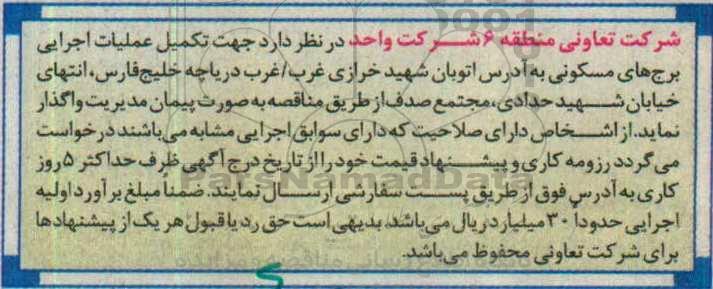 شرکت تعاونی منطقه ۶ شرکت واحد، در نظر دارد جهت تکمیل عملیات اجرایی
برج‌های مسکونی به آدرس اتوبان شهید خرازی غرب/غرب دریاچه خلیج‌فارس، انتهای
خیابان شهید حدادی، مجتمع صدف از طریق مناقصه به صورت پیمان مدیریت واگذار
نماید. از اشخاص دارای صلاحیت که دارای سوابق اجرایی مشابه می‌باشند درخواست
می‌گردد رزومه کاری و پیشنهاد قیمت خود را از تاریخ درج آگهی ظرف حداکثر ۵ روز
کاری به آدرس فوق از طریق پست سفارشی ارسال نمایند. ضمناً مبلغ برآورد اولیه
اجرایی حدوداً ۳۰ میلیارد ریال می‌باشد، بدیهی است حق رد یا قبول هر یک از پیشنهادها
برای شرکت تعاونی محفوظ می‌باشد.
ParsNamadData